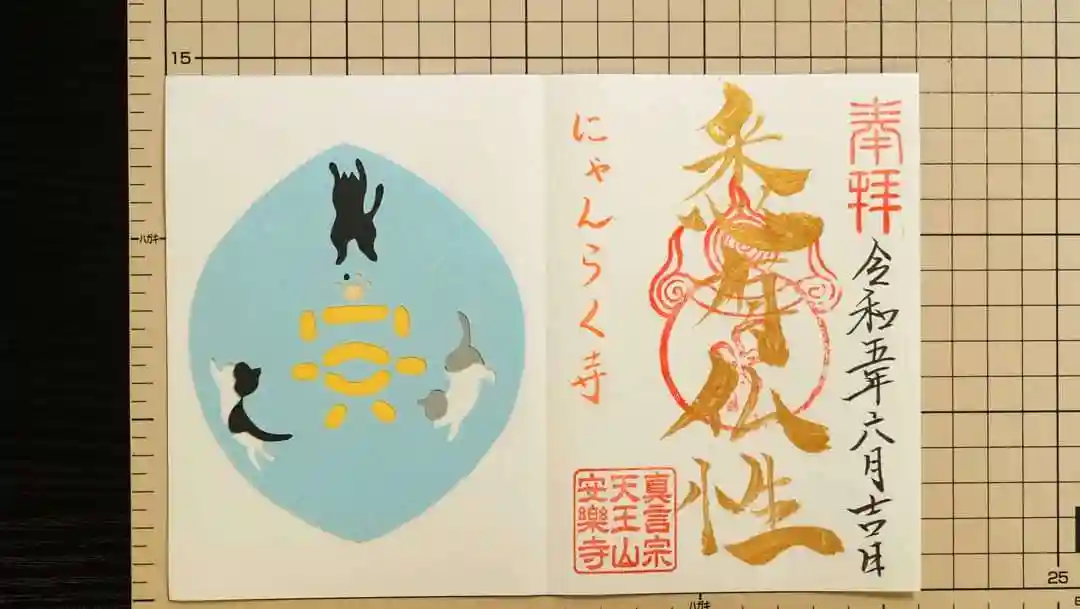 15
ハガキ
奉拝
令和五年六月吉日
悉有仏性
にゃんらく寺
真言宗
天王山
安樂寺
ハガキ
25